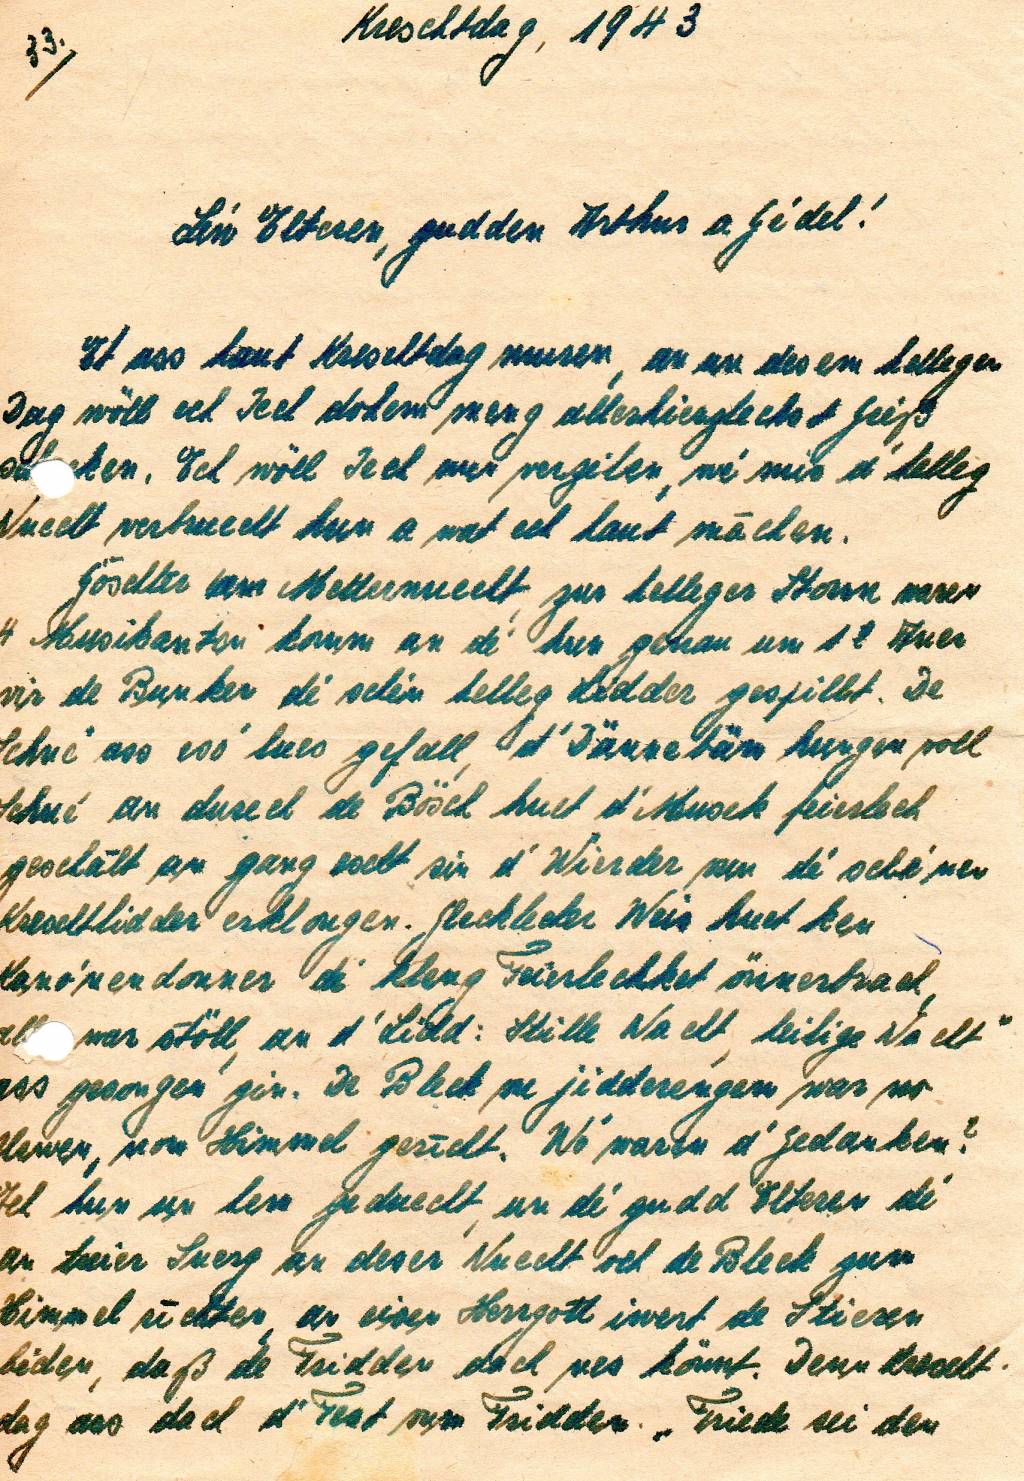 33.
Kreschtdag, 1943
Léiw Elteren, gudden Arthur a Gédel!
Et ass haut Kreschtdag muren, an un desem helleger
Dag wöll ech Iech dohem meng allerhierzlechst Gréiß
schecken. Ech wöll Iech nun verzielen, wé mir d'helleg
Nuecht verbruecht hun a wat ech haut māchen.
Göschter um Metternuecht, zur helleger Stonn waren
4 Musikanten komm an dé hun genau um 12 Auer
vir de Bunker dé schéin helleg Lidder gespillt. De
Schné ass esó lues gefall, d'Dännebäm hungen voll
Schné an duerch de Bösch huet d'Musek feierlech
geschāllt an ganz secht sin d'Wierder vun dé schéinen
Kreschtlidder erklongen. Glecklecher Weis huet ken
Kanónendonner dé kleng Feierlechket önnerbrach,
alles war stöll, an d'Lidd: Stille Nacht, heilige Nacht"
ass gesongen gin. De Bleck ve jidderengem war no
uewen, vom Himmel geriicht. Wó waren d'Gedanken?
Ech hun un hem geduecht, un dé gudd Elteren dé
an hirer Suerg an deser Nuecht och de Bleck zum
Himmel riichten, an eisen Herrgott iwert de Stieren
bieden, daß de Fridden dach nes könnt. Denn Krescht-
dag ass dach d'Fest vum Fridden. „Friede sei den